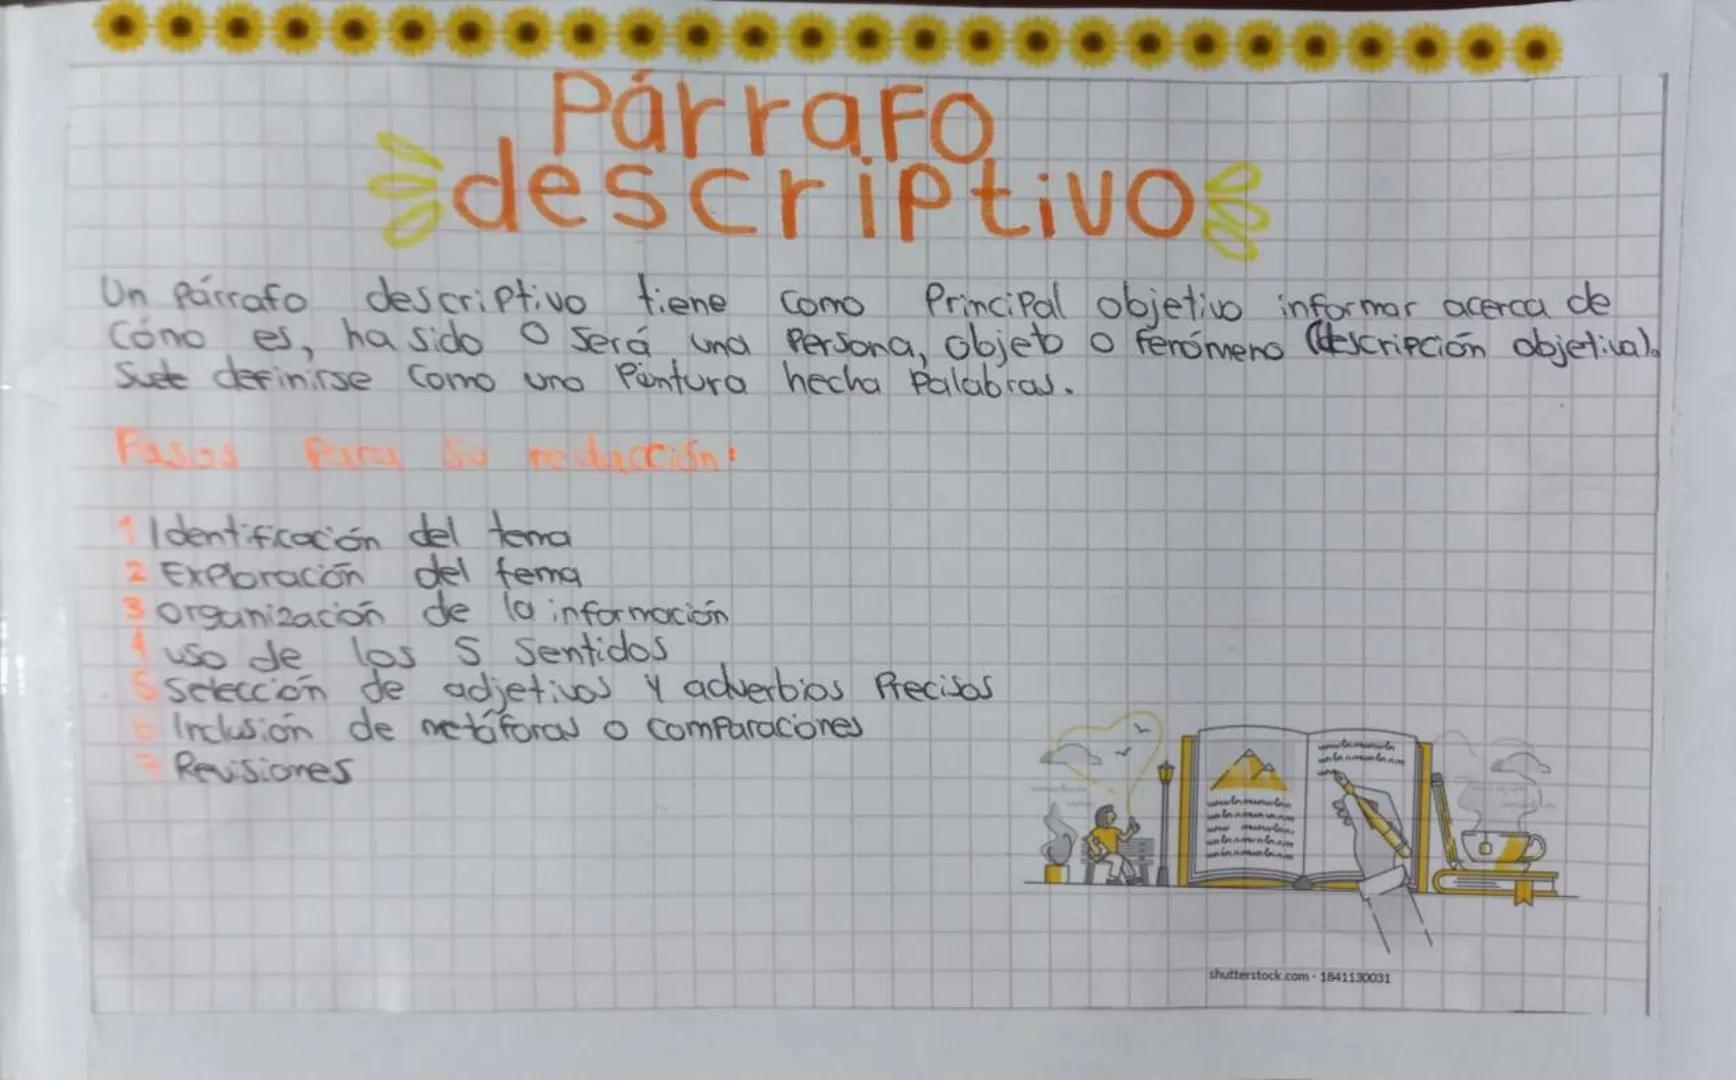 Párrafo
descriptivo
Un Párrafo descriptivo tiene como Principal objetivo informar acerca de
Cómo es, ha sido o será una Persona, objeto o fenómeno (descripción objetiva).
Suele definirse como una Pintura hecha Palabras.
Pasos Para su redacción:
1 Identificación del tema
2 Exploración del tema
3 organización de la información
4 uso de los 5 sentidos
5 Selección de adjetivos y adverbios Precisos
6 Inclusión de metáforas o comparaciones
7 Revisiones
shutterstock.com · 1841130031